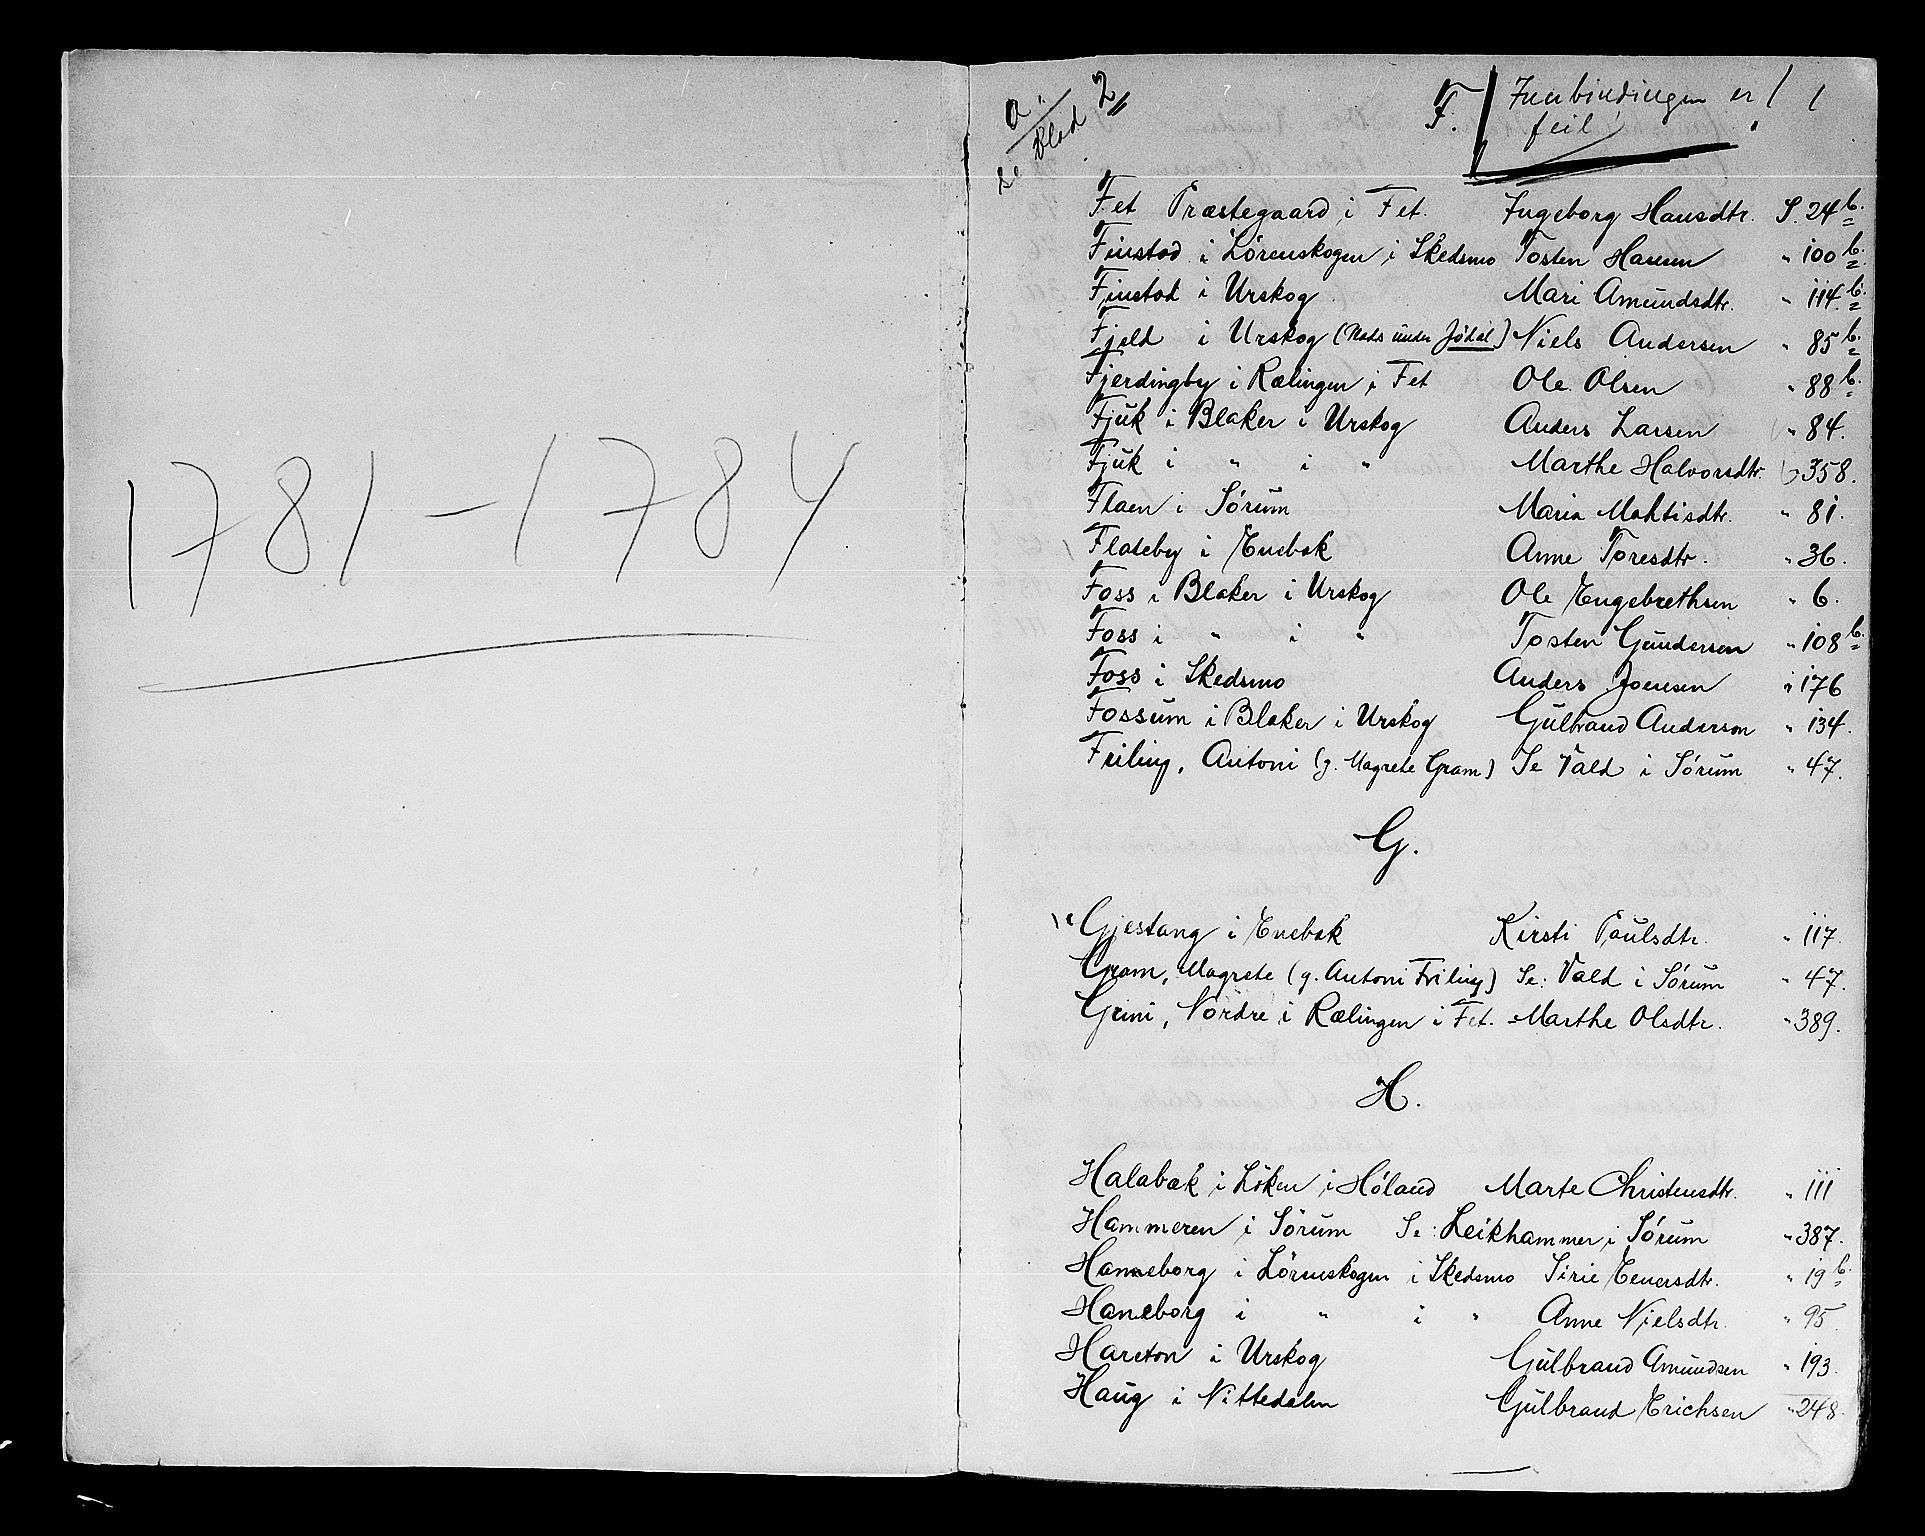 1781 - 1784
a.
se Blad 2
F. Innbindingen er 1
feil!
Fet Præstegaard i Fet. Ingeborg Hansdtr. S. 24 b.
Finstad i Lörenskogen i Skedsmo Tosten Hansen " 100 b.
Finstad i Urskog Mari Amundsdtr. " 114 b.
Fjeld i Urskog (Nads under Jödal) Niels Andersen " 85 b.
Fjerdingby i Rælingen i Fet Ole Olsen " 88 b.
Fjuk i Blaker i Urskog Anders Larsen " 84.
Fjuk i " i " Marthe Halvorsdtr. " 358.
Flaen i Sörum Maria Mahtisdtr. " 81.
Flateby i Enebak Anne Toresdtr. " 36.
Foss i Blaker i Urskog Ole Engebrethsen " 6.
Foss i " i " Tosten Gundersen " 108 b.
Foss i Skedsmo Anders Joensen " 176
Fossum i Blaker i Urskog Gulbrand Anderson " 134.
Friling, Antoni (g. Magrete Gram) Se Vald i Sörum " 47.
G.
Gjestang i Enebak Kirsti Poulsdtr. " 117.
Gram, Magrete (g. Antoni Friling) Se: Vald i Sörum " 47.
Grini, Nordre i Rælingen i Fet. Marthe Olsdtr. " 389.
H.
Halabak i Löken i Höland Marte Christensdtr. " 111
Hammeren i Sörum Se: Leikhammer i Sörum " 387.
Hanneborg i Lörenskogen i Skedsmo Sirie Enersdtr. " 19 b.
Haneborg i " i " Anne Nielsdtr. " 95.
Hareton i Urskog Gulbrand Amundsen " 193.
Haug i Nittedalen Gulbrand Erichsen " 248.